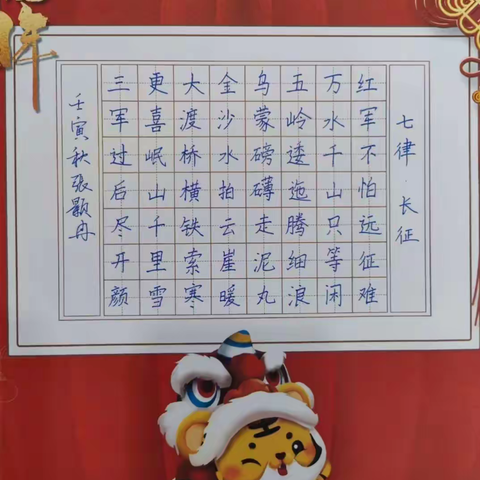 七律·长征
红军不怕远征难
万水千山只等闲
五岭逶迤腾细浪
乌蒙磅礴走泥丸
金沙水拍云崖暖
大渡桥横铁索寒
更喜岷山千里雪
三军过后尽开颜
壬寅秋张